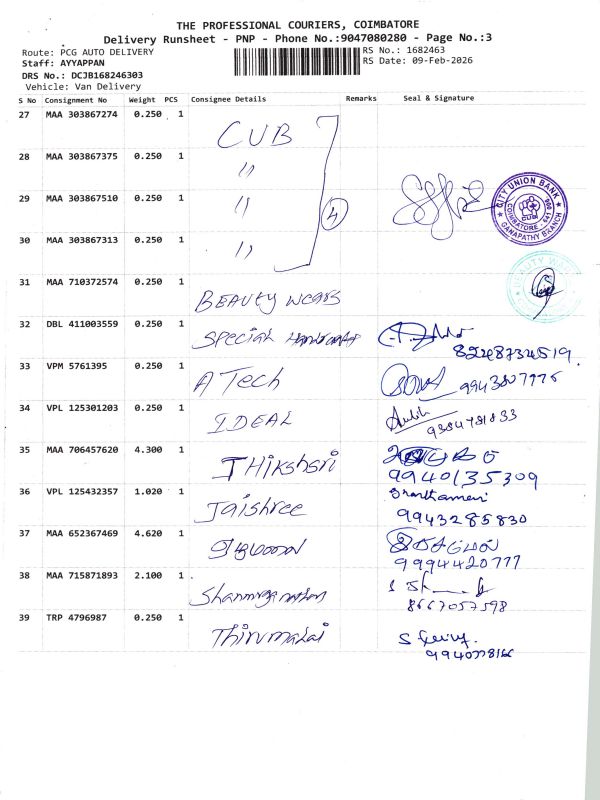 THE PROFESSIONAL COURIERS, COIMBATORE
Delivery Runsheet - PNP - Phone No.:9047080280 - Page No.:3
Route: PCG AUTO DELIVERY
RS No.: 1682463
Staff: AYYAPPAN
RS Date: 09-Feb-2026
DRS No.: DCJB168246303
Vehicle: Van Delivery
S No Consignment No Weight PCS Consignee Details Remarks Seal & Signature
27 MAA 303867274 0.250 1 CUB
28 MAA 303867375 0.250 1 "
29 MAA 303867510 0.250 1 " 4
CITY UNION BANK
COIMBATORE 641 006
CUB
GANAPATHY BRANCH
30 MAA 303867313 0.250 1 "
31 MAA 710372574 0.250 1 BEAUTY WEARS
BEAUTY
32 DBL 411003559 0.250 1 SPECIAL
8248734519
33 VPM 5761395 0.250 1 A Tech
34 VPL 125301203 0.250 1 IDEAL
9384781833
35 MAA 706457620 4.300 1 THIKshsri
9940135309
36 VPL 125432357 1.020 1 Jaishree
9943285830
37 MAA 652367469 4.620 1
9994420777
38 MAA 715871893 2.100 1
8667057598
39 TRP 4796987 0.250 1 Thirumalai